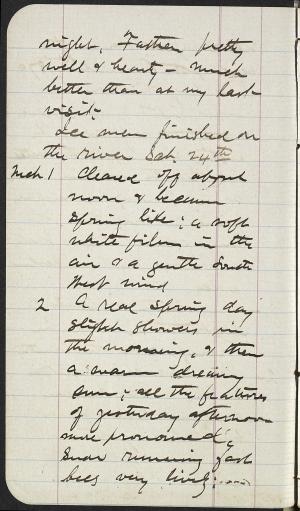 night, Father pretty
well & hearty - much
better than at my last
visit.
Ice men finished on
the river Sat. 24th
Mch 1 Cleared off about
noon & became
spring like; a soft
white film in the
air & a gentle South
West wind
2 A real spring day
slight showers in
the morning, & then
a warm dreamy
sun; all the features
of yesterday afternoon
more pronounced,
Snow running fast
bees very lively;